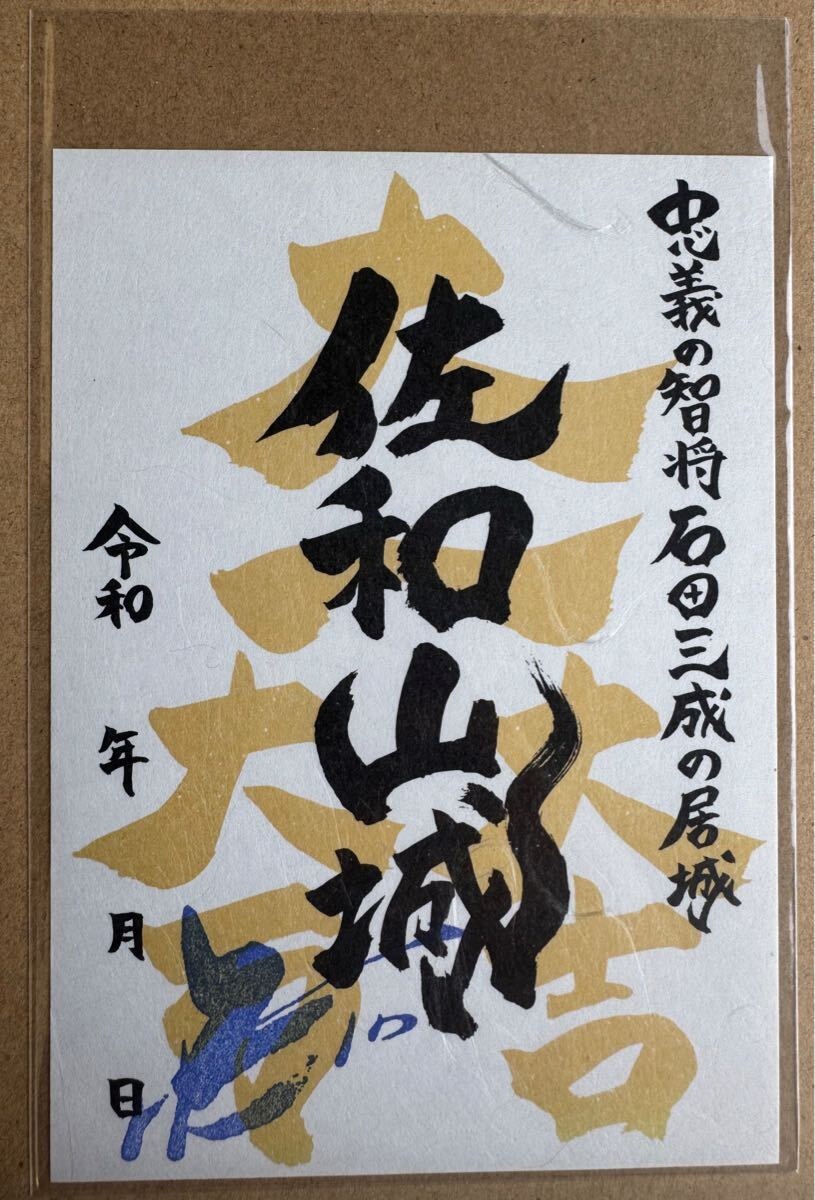 忠義の智将石田三成の居城
佐和山城
大一大万大吉
令和 年 月 日